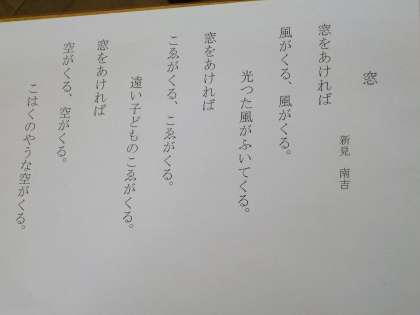 窓
新見　南吉
窓をあければ
風がくる、風がくる。
光つた風がふいてくる。
窓をあければ
こゑがくる、こゑがくる。
遠い子どものこゑがくる。
窓をあければ
空がくる、空がくる。
こはくのやうな空がくる。